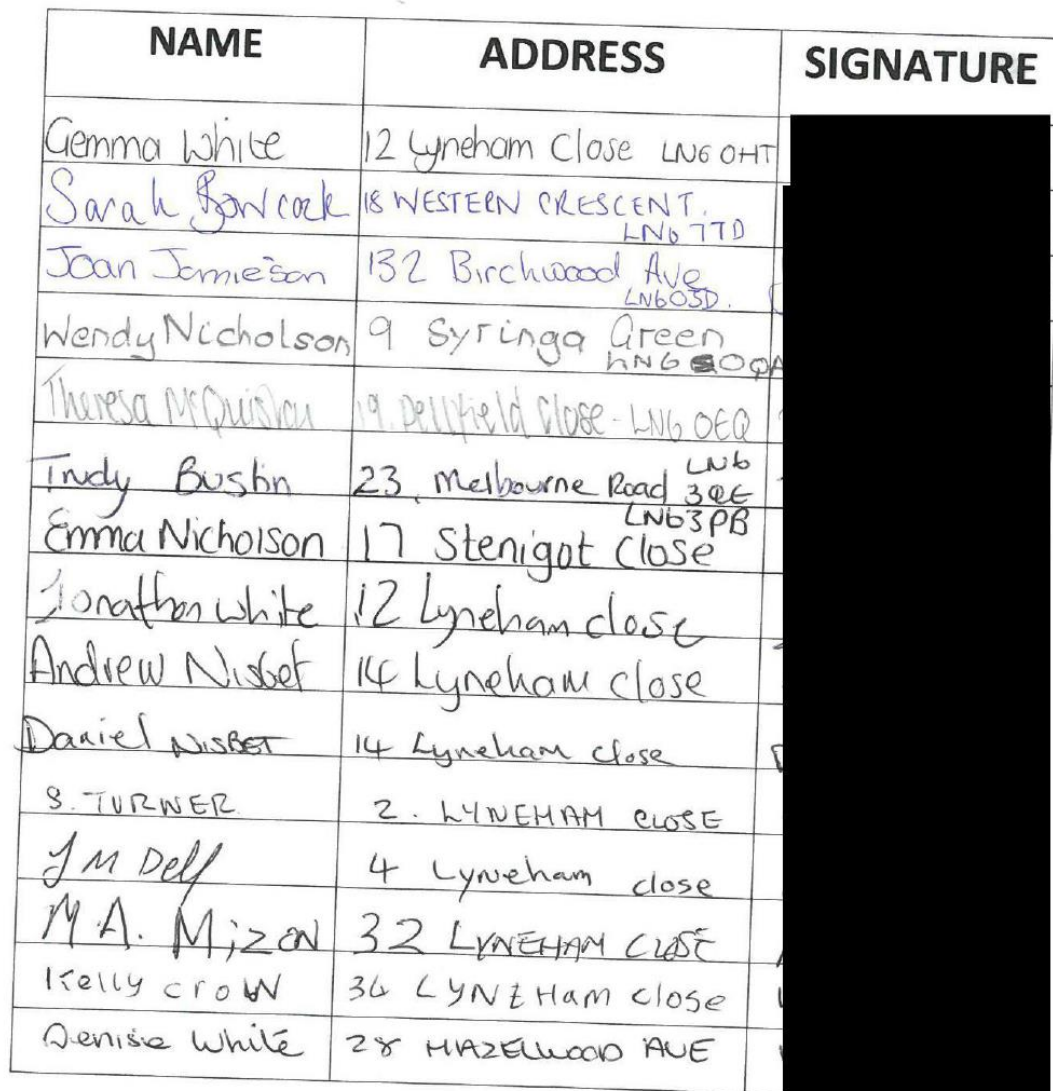 NAME ADDRESS SIGNATURE
Gemma White 12 Lyneham Close LN6 0HT
Sarah Bowcock 18 WESTERN CRESCENT.
LN6 7TD
Joan Jamieson 132 Birchwood Ave
LN6 0JD.
Wendy Nicholson 9 Syringa Green
LN6 0QA
Theresa McQuistan 19. Dellfield Close - LN6 0EQ
Trudy Bustin 23, Melbourne Road LN6
3QE
LN6 3PB
Emma Nicholson 17 Stenigot Close
Jonathon White 12 Lyneham close
Andrew Nisbet 14 Lyneham Close
Daniel NISBET 14 Lyneham Close
S. TURNER 2. LYNEHAM CLOSE
J M Dell 4 Lyneham close
M.A. Mizon 32 LYNEHAM CLOSE
Kelly croW 34 LYNEHam close
Denise White 28 HAZELWOOD AVE